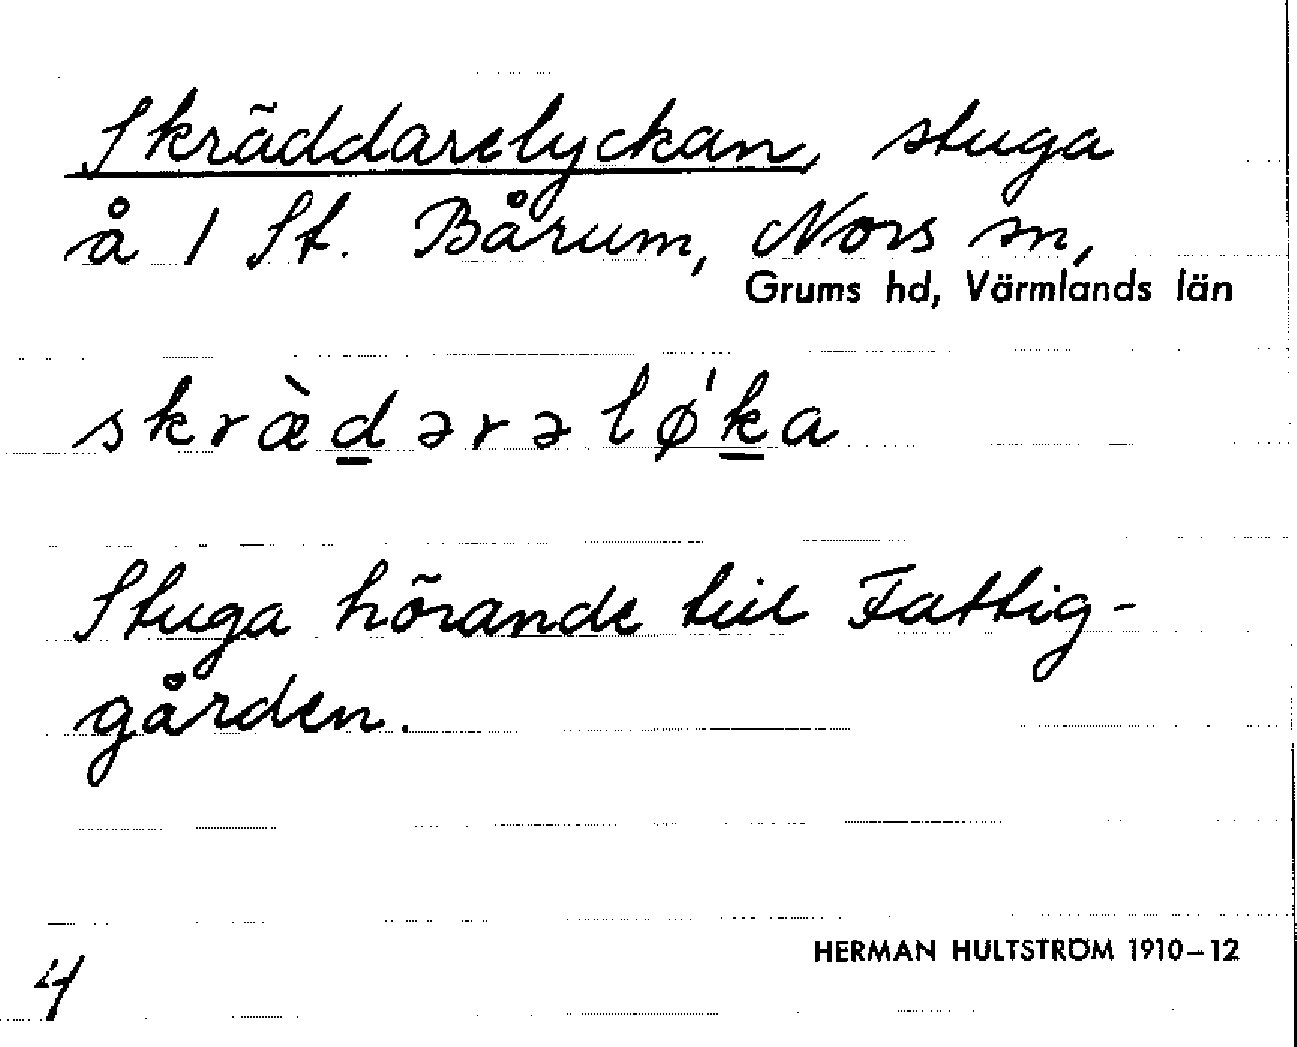 Skräddarelyckan, stuga
å 1 St. Bårum, Nors sn,
Grums hd, Värmlands län
skræ̀d̲ərəløˈk̲a
Stuga hörande till Fattig-
gården.
HERMAN HULTSTRÖM 1910–12
4